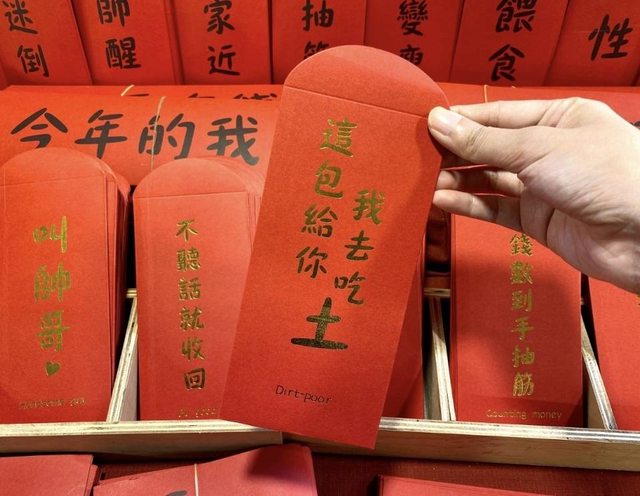 迷倒
帥醒
家近
抽
變
餵食
性
今年的我
叫帥哥♥
不聽話就收回
這包給你
我去吃
土
Dirt-poor
錢數到手抽筋
Counting money